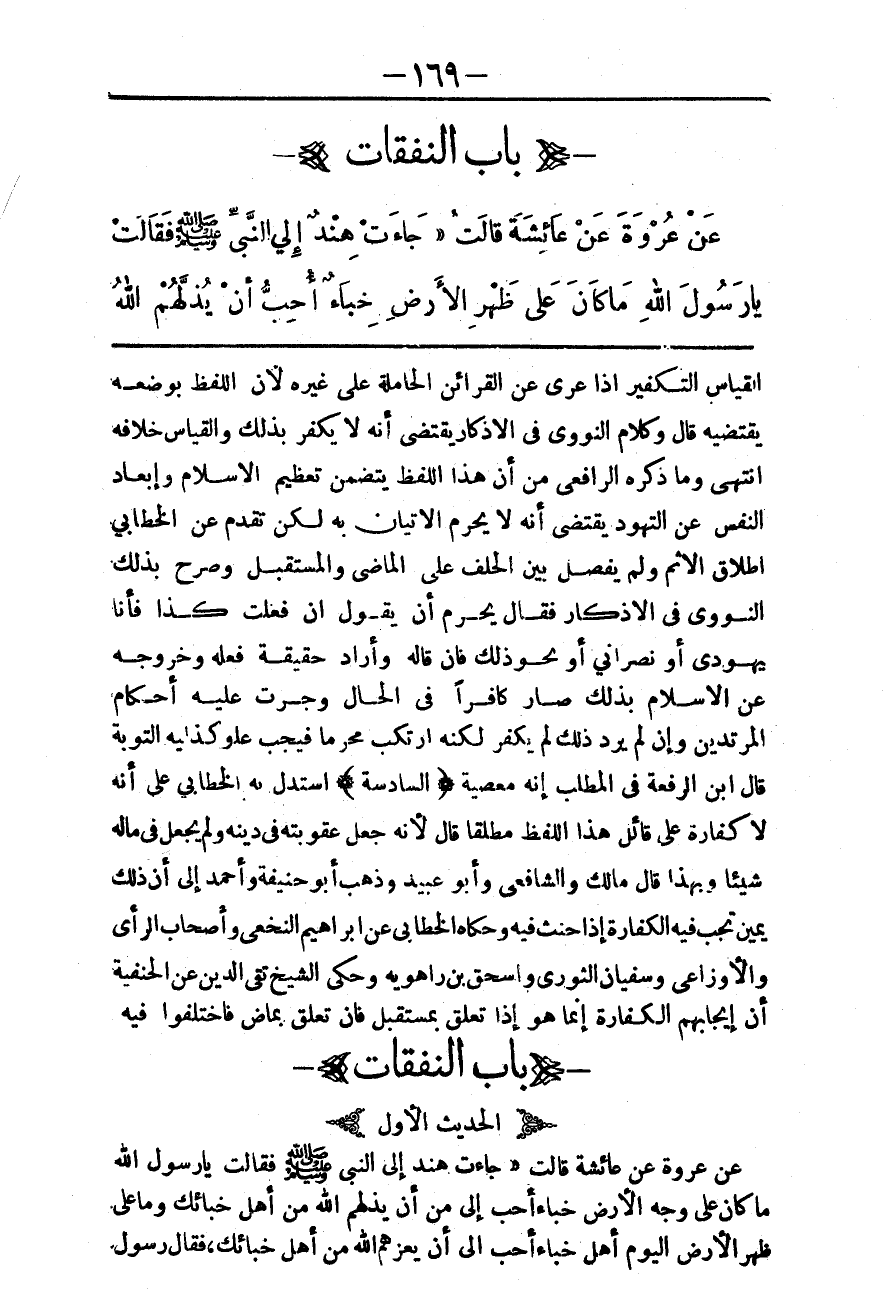 -١٦٩-
باب النفقات
عَنْ عُرْوَةَ عَنْ عَائِشَةَ قالَتْ « جَاءَتْ هِنْدٌ إِلي النَّبِيِّ ﷺ فَقَالَتْ
يارَسُولَ اللهِ مَاكَانَ عَلى ظَهْرِ الأَرْضِ خِباءٌ أَحِبُّ أَنْ يُذلَّهُمْ اللهُ
القياس التكفير اذا عرى عن القرائن الحاملة على غيره لأن اللفظ بوضعه
يقتضيه قال وكلام النووى فى الاذكار يقتضى أنه لا يكفر بذلك والقياس خلافه
انتهى وما ذكره الرافعى من أن هذا اللفظ يتضمن تعظيم الاسلام وإبعاد
النفس عن التهود يقتضى أنه لا يحرم الاتيان به لكن تقدم عن الخطابي
اطلاق الاثم ولم يفصل بين الحلف على الماضى والمستقبل وصرح بذلك
النووى فى الاذكار فقال يحرم أن يقول ان فعلت كذا فأنا
يهودى أو نصراني أو نحو ذلك فان قاله وأراد حقيقة فعله وخروجه
عن الاسلام بذلك صار كافراً فى الحال وجرت عليه أحكام
المرتدين وإن لم يرد ذلك لم يكفر لكنه ارتكب محرما فيجب عليه التوبة
قال ابن الرفعة فى المطلب إنه معصية ﴿ السادسة ﴾ استدل به الخطابي على أنه
لا كفارة على قائل هذا اللفظ مطلقا قال لأنه جعل عقوبته فى دينه ولم يجعل فى ماله
شيئا وبهذا قال مالك والشافعى وأبو عبيد وذهب أبو حنيفة وأحمد إلى أن ذلك
يمين تجب فيه الكفارة إذا حنث فيه وحكاه الخطابي عن ابراهيم النخعى وأصحاب الرأى
والأوزاعى وسفيان الثورى واسحق بن راهويه وحكى الشيخ تقى الدين عن الحنفية
أن إيجابهم الكفارة إنما هو إذا تعلق بمستقبل فان تعلق بماض فاختلفوا فيه
باب النفقات
الحديث الأول
عن عروة عن عائشة قالت « جاءت هند إلى النبي ﷺ فقالت يارسول الله
ما كان على وجه الأرض خباء أحب إلى من أن يذلهم الله من أهل خبائك وما على
ظهر الأرض اليوم أهل خباء أحب الى أن يعزهم الله من أهل خبائك، فقال رسول